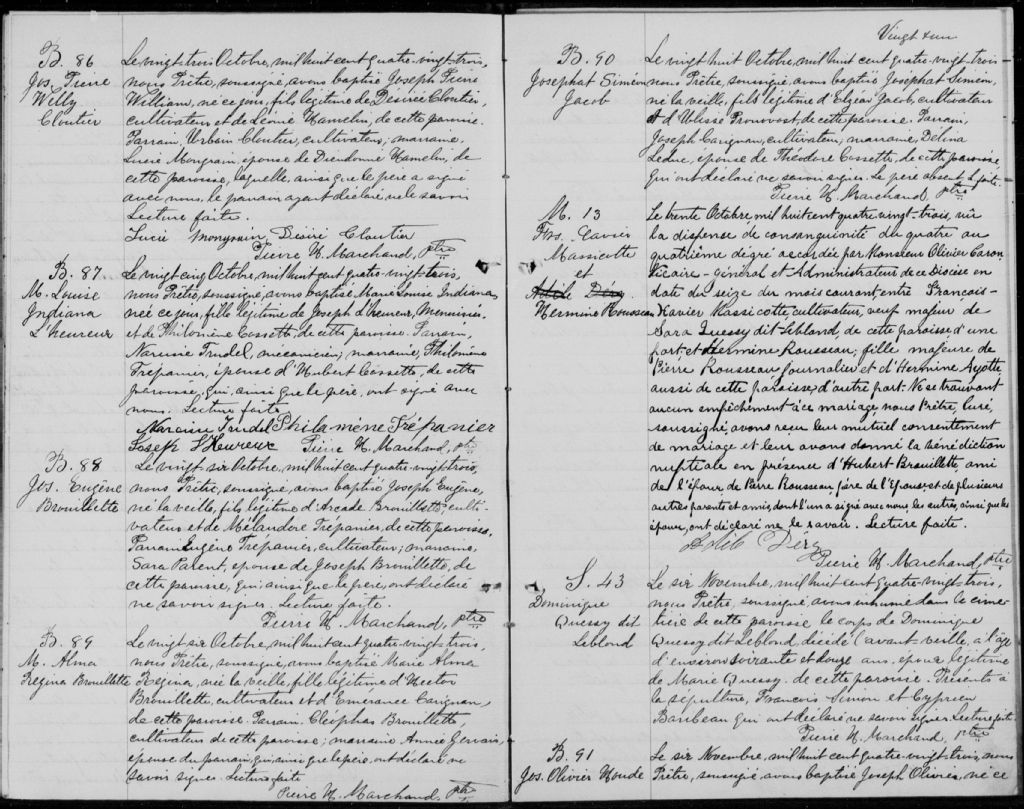 B. 86
Jos. Pierre
Willy
Cloutier
Le vingt-trois Octobre, mil huit cent quatre-vingt-trois,
nous Prêtre, soussigné, avons baptisé Joseph Pierre
William, né ce jour, fils légitime de Désiré Cloutier,
cultivateur et de Léonie Hamelin, de cette paroisse.
Parrain, Urbain Cloutier, cultivateur; marraine,
Lucie Mongrain, épouse de Dieudonné Hamelin, de
cette paroisse, laquelle, ainsi que le père a signé
avec nous, le parrain ayant déclaré ne le savoir
Lecture faite.
Lucie Mongrain Désiré Cloutier
Pierre H. Marchand, ptre
B. 87
M. Louise
Indiana
L'heureux
Le vingt cinq Octobre, mil huit cent quatre-vingt-trois,
nous Prêtre, soussigné, avons baptisé Marie Louise Indiana,
née ce jour, fille légitime de Joseph L'heureux, Menuisier
et de Philomène Cossette, de cette paroisse. Parrain,
Narcisse Trudel, mécanicien; marraine, Philomène
Trépanier, épouse d'Hubert Cossette, de cette
paroisse, qui, ainsi que le père, ont signé avec
nous. Lecture faite
Narcisse Trudel Philomène Trépanier
Joseph L'Heureux Pierre H. Marchand, ptre
B. 88
Jos. Eugène
Brouillette
Le vingt-six Octobre, mil huit cent quatre-vingt-trois,
nous Prêtre, soussigné, avons baptisé Joseph Eugène,
né la veille, fils légitime d'Arcade Brouillette, culti-
vateur et de Mélandore Trépanier, de cette paroisse,
Parrain Eugène Trépanier, cultivateur; marraine,
Sara Parent, épouse de Joseph Brouillette, de
cette paroisse, qui, ainsi que le père, ont déclaré
ne savoir signer. Lecture faite.
Pierre H. Marchand, ptre
B. 89
M. Alma
Régina Brouillette
Le vingt-six Octobre, mil huit cent quatre-vingt-trois,
nous Prêtre, soussigné, avons baptisé Marie Alma
Régina, née la veille, fille légitime d'Hector
Brouillette, cultivateur et d'Émérance Carignan,
de cette paroisse. Parrain, Cléophas Brouillette,
cultivateur de cette paroisse; marraine Annie Gervais,
épouse du parrain, qui, ainsi que le père, ont déclaré ne
savoir signer. Lecture faite
Pierre H. Marchand, ptre
Vingt & un
B. 90
Josephat Siméon
Jacob
Le vingt huit Octobre, mil huit cent quatre-vingt-trois
nous Prêtre, soussigné avons baptisé Josephat Siméon,
né la veille, fils légitime d'Elzéar Jacob, cultivateur
et d'Ulisse Pronovost, de cette paroisse. Parrain,
Joseph Carignan, cultivateur; marraine, Délina
Leduc, épouse de Théodore Cossette, de cette paroisse
qui ont déclaré ne savoir signer. Le père absent. L. faite.
Pierre H. Marchand, ptre
M. 13
Frs. Xavier
Massicotte
et
Adile Déry
Hermine Rousseau
Le trente Octobre mil huit cent quatre vingt-trois, vu
la dispense de consanguinité du quatre au
quatrième dégré accordée par Monsieur Olivier Caron
Vicaire-Général et Administrateur de ce Diocèse en
date du seize du mois courant, entre François-
Xavier Massicotte, cultivateur, veuf majeur de
Sara Quessy dit Lebland, de cette paroisse d'une
part, et Hermine Rousseau, fille majeure de
Pierre Rousseau, journalier et d'Hermine Ayotte
aussi de cette paroisse, d'autre part. Ne se trouvant
aucun empêchement à ce mariage, nous Prêtre, Curé,
soussigné, avons reçu leur mutuel consentement
de mariage et leur avons donné la bénédiction
nuptiale en présence d'Hubert Brouillette, ami
de l'époux, de Pierre Rousseau, père de l'épouse, et de plusieurs
autres parents et amis, dont l'un a signé avec nous, les autres, ainsi que les
époux, ont déclaré ne le savoir. Lecture faite.
Adile Déry
Pierre H. Marchand, ptre
S. 43
Dominique
Quessy dit
Leblond
Le six Novembre, mil huit cent quatre-vingt-trois,
nous Prêtre, soussigné, avons inhumé dans le cime-
tière de cette paroisse le corps de Dominique
Quessy dit Leblond décédé l'avant-veille, à l'âge
d'environ soixante et douze ans, époux légitime
de Marie Quessy, de cette paroisse. Présents à
la sépulture, François Simon et Cyprien
Baribeau qui ont déclaré ne savoir signer. Lecture faite.
Pierre H. Marchand, ptre
B. 91
Jos. Olivier Houde
Le six Novembre, mil huit cent quatre-vingt-trois, nous
Prêtre, soussigné avons baptisé Joseph Olivier, né ce